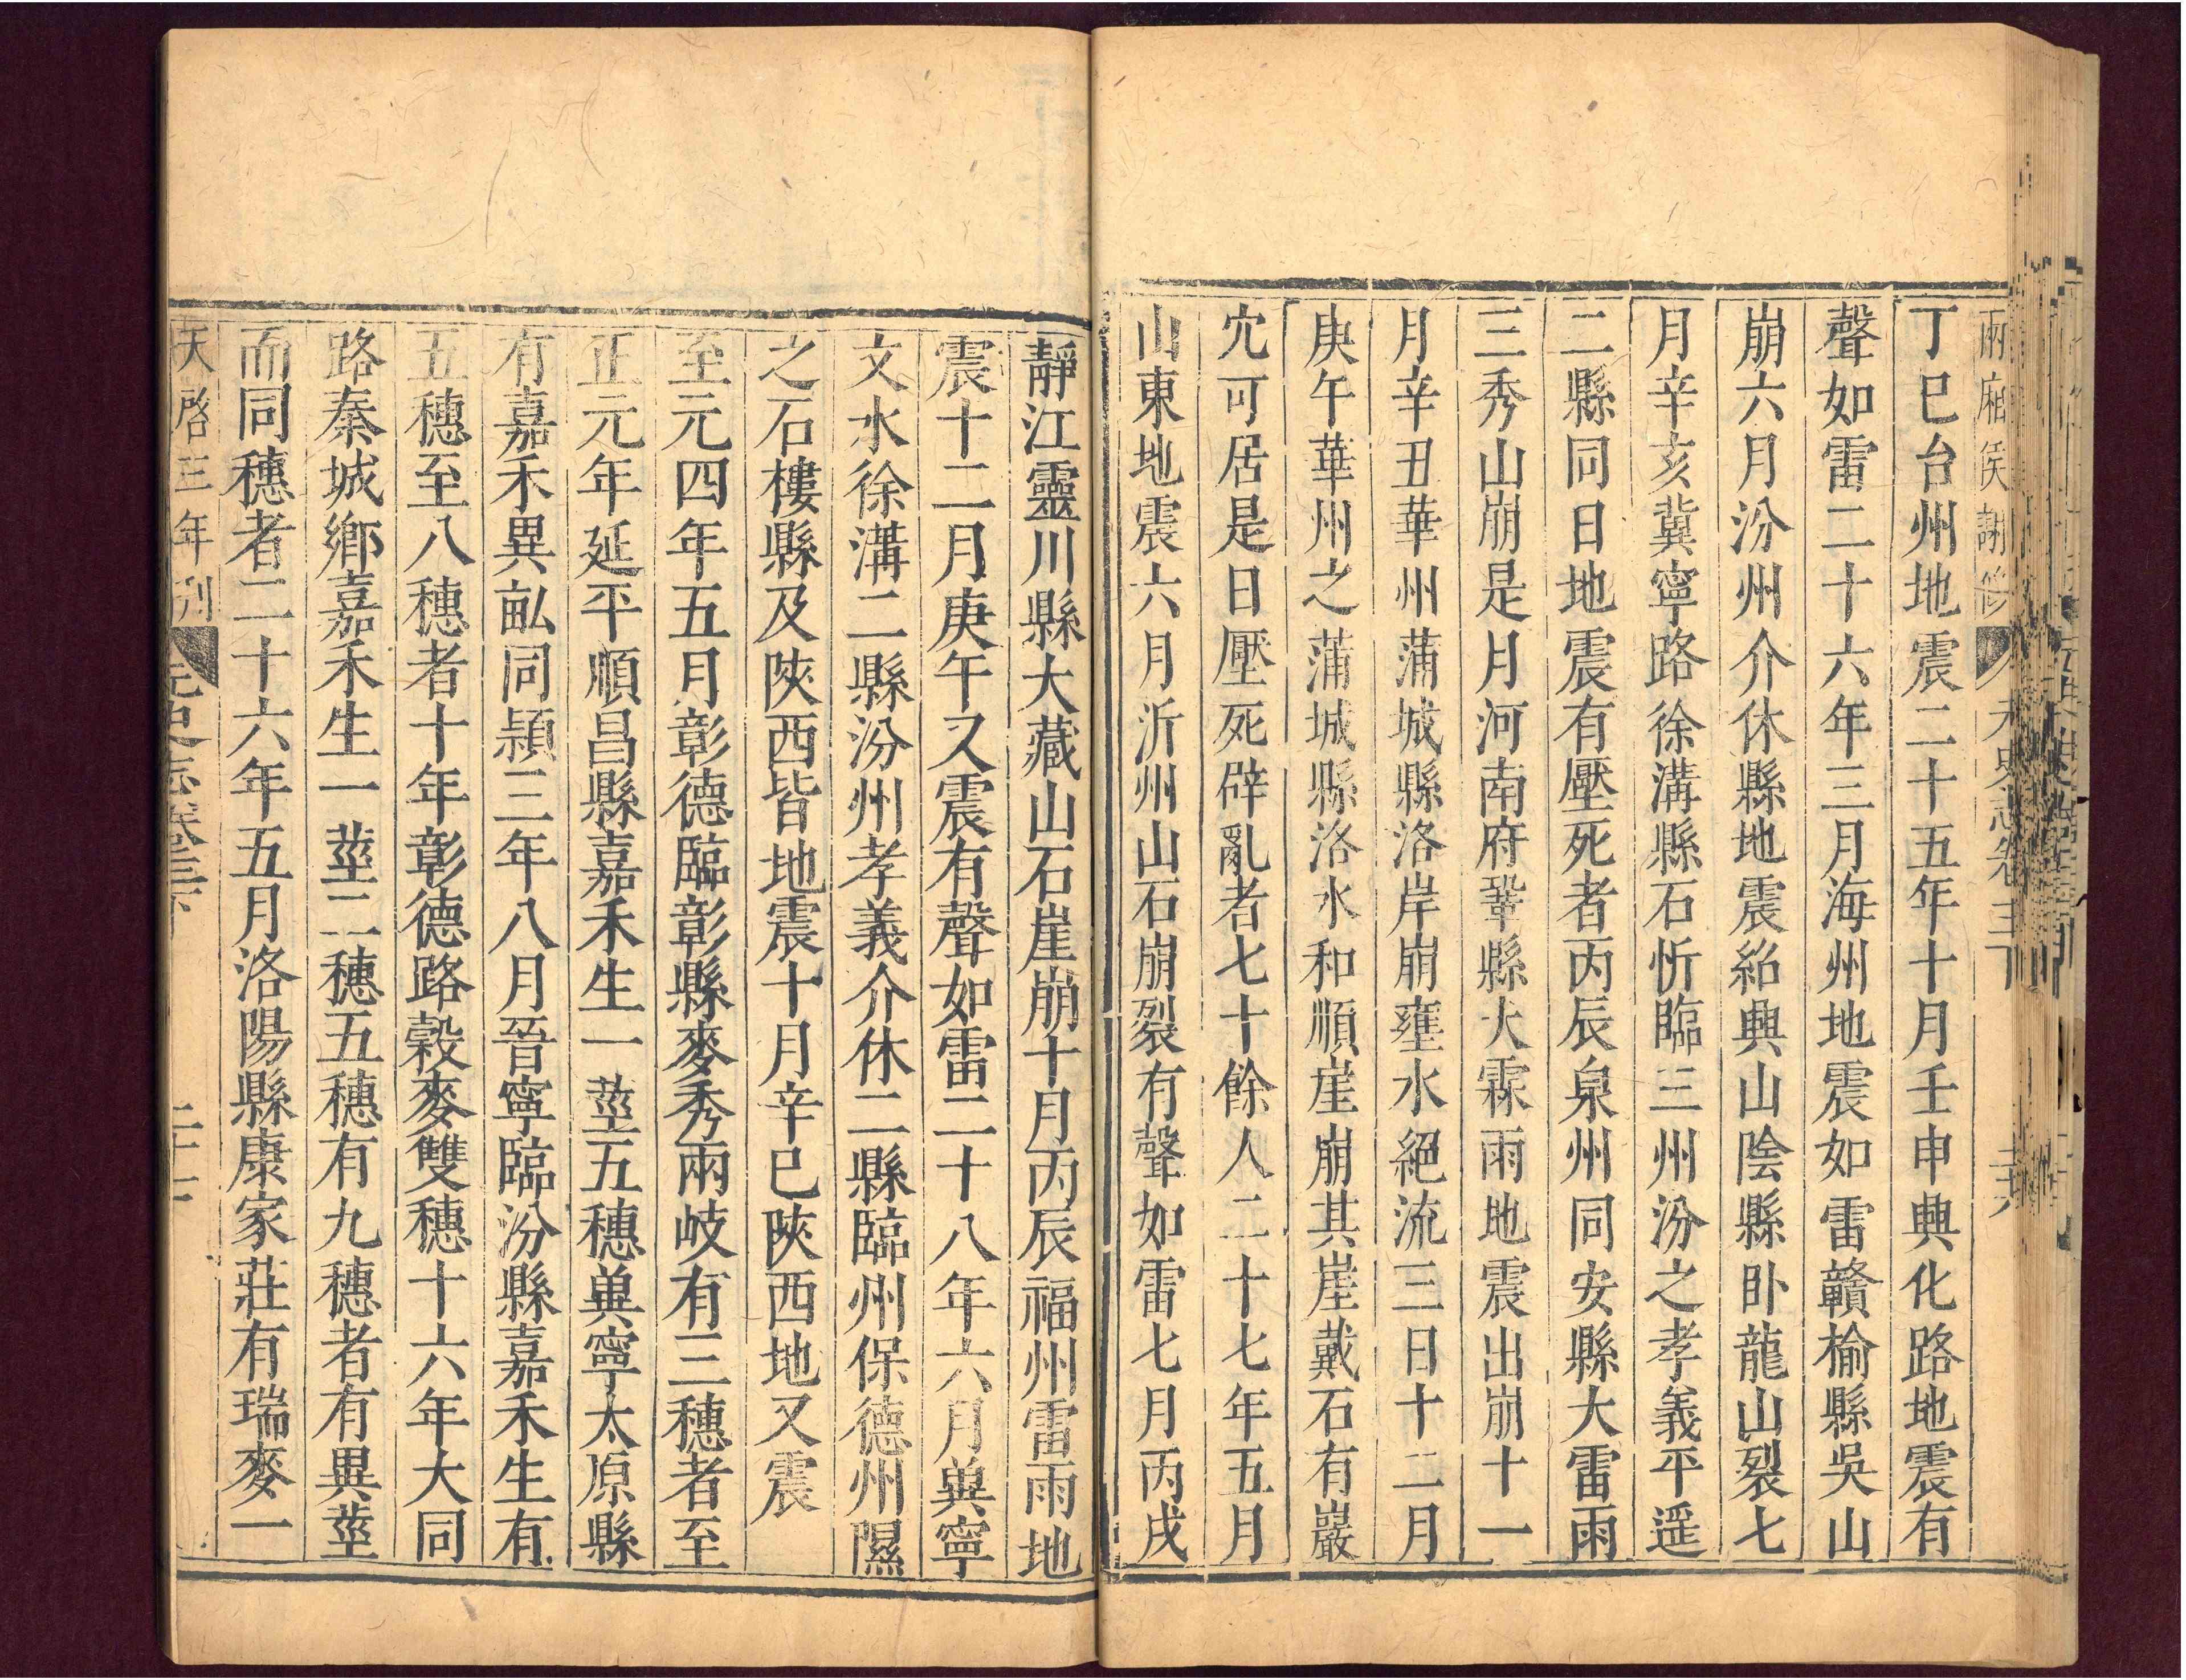 丁巳台州地震二十五年十月壬申興化路地震有
聲如雷二十六年三月海州地震如雷贛榆縣吳山
崩六月汾州介休縣地震紹興山陰縣卧龍山裂七
月辛亥冀寧路徐溝縣石忻臨三州汾之孝義平遥
二縣同日地震有壓死者丙辰泉州同安縣大雷雨
三秀山崩是月河南府鞏縣大霖雨地震出崩十一
月辛丑華州蒲城縣洛岸崩壅水絕流三日十二月
庚午華州之蒲城縣洛水和順崖崩其崖戴石有巖
穴可居是日壓死辟亂者七十餘人二十七年五月
山東地震六月沂州山石崩裂有聲如雷七月丙戌
靜江靈川縣大藏山石崖崩十月丙辰福州雷雨地
震十二月庚午又震有聲如雷二十八年六月兾寧
文水徐溝二縣汾州孝義介休二縣臨州保德州隰
之石樓縣及陜西皆地震十月辛巳陜西地又震
至元四年五月彰德臨彰縣麥秀兩岐有三穗者至
正元年延平順昌縣嘉禾生一莖五穗兾寧太原縣
有嘉禾異畝同穎三年八月晉寧臨汾縣嘉禾生有
五穗至八穗者十年彰德路榖麥雙穗十六年大同
路秦城鄉嘉禾生一莖二穗五穗有九穗者有異莖
而同穗者二十六年五月洛陽縣康家莊有瑞麥一
天啓三年刊
元史志卷三下